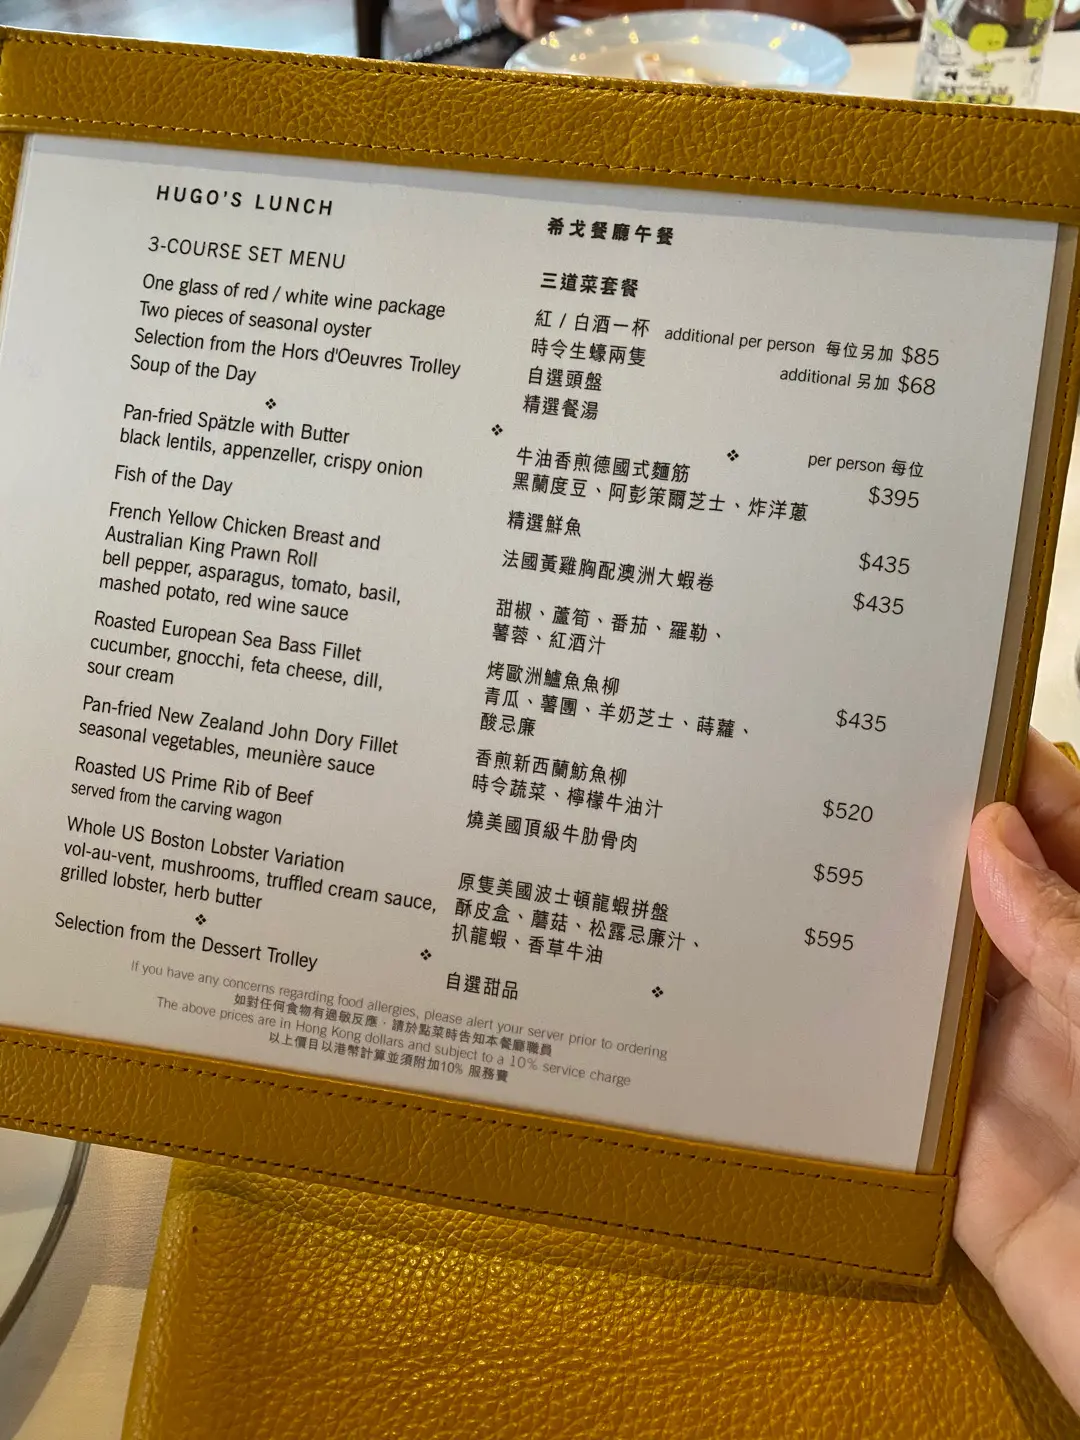 HUGO'S LUNCH
3-COURSE SET MENU
One glass of red / white wine package
Two pieces of seasonal oyster
Selection from the Hors d'Oeuvres Trolley
Soup of the Day
❖
Pan-fried Spätzle with Butter
black lentils, appenzeller, crispy onion
Fish of the Day
French Yellow Chicken Breast and
Australian King Prawn Roll
bell pepper, asparagus, tomato, basil,
mashed potato, red wine sauce
Roasted European Sea Bass Fillet
cucumber, gnocchi, feta cheese, dill,
sour cream
Pan-fried New Zealand John Dory Fillet
seasonal vegetables, meunière sauce
Roasted US Prime Rib of Beef
served from the carving wagon
Whole US Boston Lobster Variation
vol-au-vent, mushrooms, truffled cream sauce,
grilled lobster, herb butter
❖
Selection from the Dessert Trolley
希戈餐廳午餐
三道菜套餐
紅 / 白酒一杯 additional per person 每位另加 $85
時令生蠔兩隻 additional 另加 $68
自選頭盤
精選餐湯
❖ ❖ per person 每位
牛油香煎德國式麵筋 $395
黑蘭度豆、阿彭策爾芝士、炸洋蔥
精選鮮魚 $435
法國黃雞胸配澳洲大蝦卷 $435
甜椒、蘆筍、番茄、羅勒、
薯蓉、紅酒汁
烤歐洲鱸魚魚柳 $435
青瓜、薯團、羊奶芝士、蒔蘿、
酸忌廉
香煎新西蘭魴魚柳 $520
時令蔬菜、檸檬牛油汁
燒美國頂級牛肋骨肉 $595
原隻美國波士頓龍蝦拼盤 $595
酥皮盒、蘑菇、松露忌廉汁、
扒龍蝦、香草牛油
❖ ❖
自選甜品
If you have any concerns regarding food allergies, please alert your server prior to ordering
如對任何食物有過敏反應，請於點菜時告知本餐廳職員
The above prices are in Hong Kong dollars and subject to a 10% service charge
以上價目以港幣計算並須附加10% 服務費